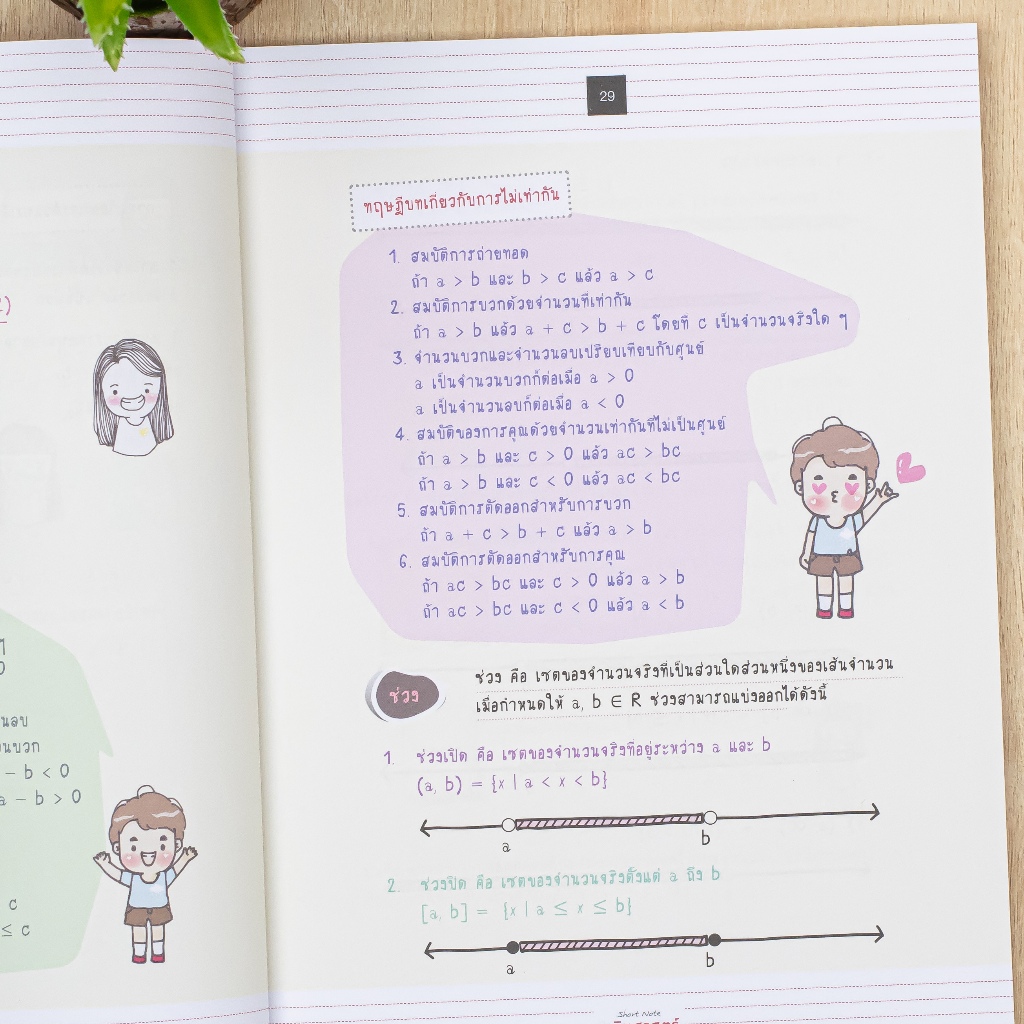 2)
นลบ
นบวก
- b < 0
a - b > 0
c
≤ c
29
ทฤษฎีบทเกี่ยวกับการไม่เท่ากัน
1. สมบัติการถ่ายทอด
ถ้า a > b และ b > c แล้ว a > c
2. สมบัติการบวกด้วยจำนวนที่เท่ากัน
ถ้า a > b แล้ว a + c > b + c โดยที่ c เป็นจำนวนจริงใด ๆ
3. จำนวนบวกและจำนวนลบเปรียบเทียบกับศูนย์
a เป็นจำนวนบวกก็ต่อเมื่อ a > 0
a เป็นจำนวนลบก็ต่อเมื่อ a < 0
4. สมบัติของการคูณด้วยจำนวนเท่ากันที่ไม่เป็นศูนย์
ถ้า a > b และ c > 0 แล้ว ac > bc
ถ้า a > b และ c < 0 แล้ว ac < bc
5. สมบัติการตัดออกสำหรับการบวก
ถ้า a + c > b + c แล้ว a > b
6. สมบัติการตัดออกสำหรับการคูณ
ถ้า ac > bc และ c > 0 แล้ว a > b
ถ้า ac > bc และ c < 0 แล้ว a < b
ช่วง
ช่วง คือ เซตของจำนวนจริงที่เป็นส่วนใดส่วนหนึ่งของเส้นจำนวน
เมื่อกำหนดให้ a, b ∈ R ช่วงสามารถแบ่งออกได้ดังนี้
1. ช่วงเปิด คือ เซตของจำนวนจริงที่อยู่ระหว่าง a และ b
(a, b) = {x | a < x < b}
a b
2. ช่วงปิด คือ เซตของจำนวนจริงตั้งแต่ a ถึง b
[a, b] = {x | a ≤ x ≤ b}
a b
Short Note